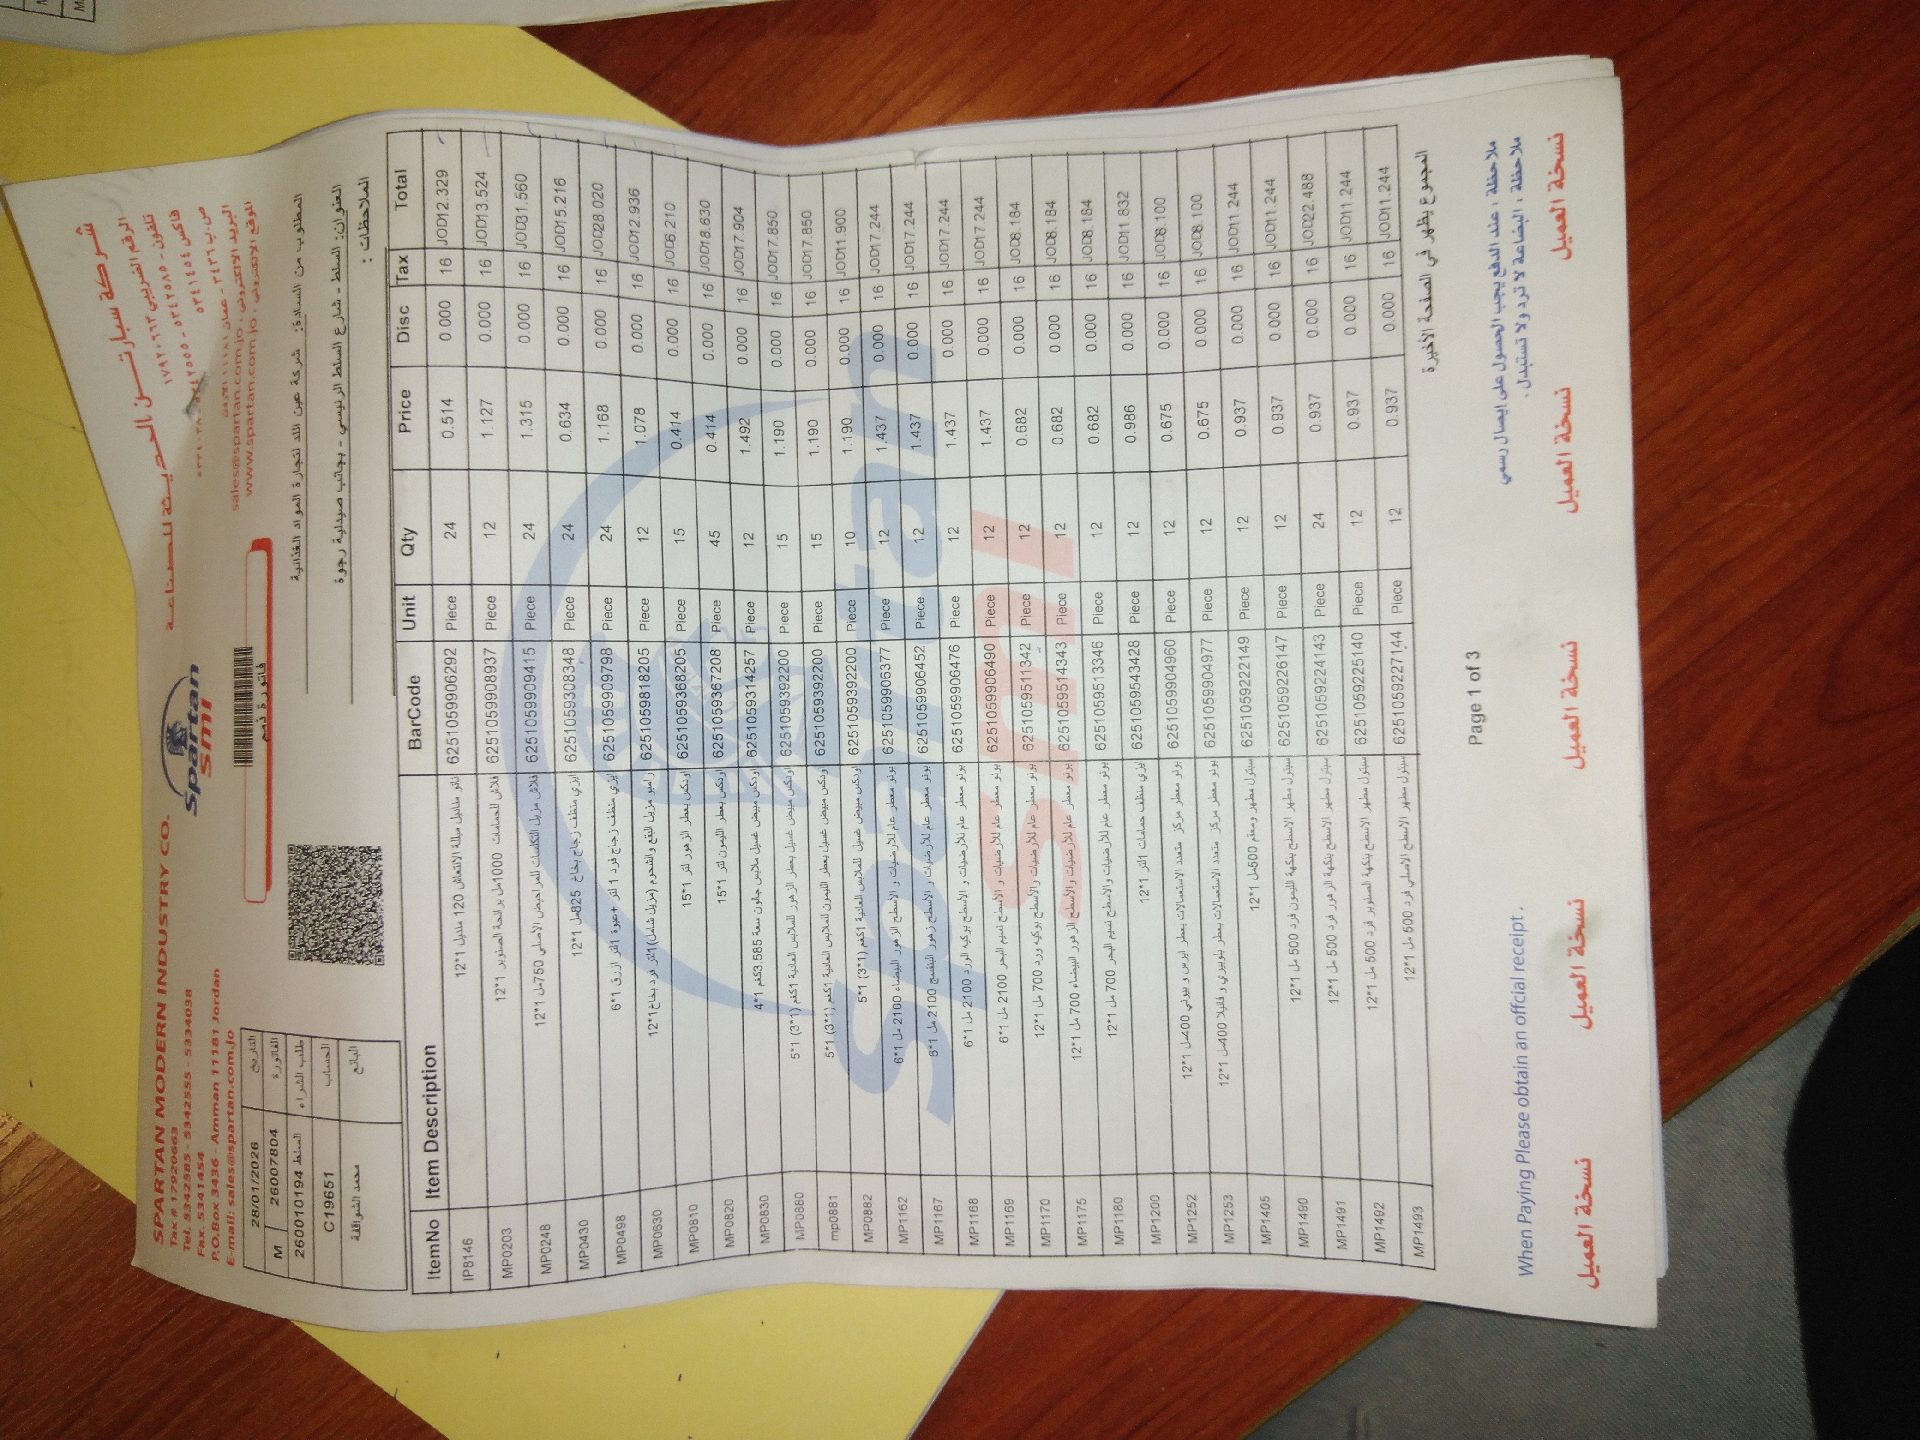 SPARTAN MODERN INDUSTRY CO.
Tax # 17920663
Tel. 5342585 - 5342555 - 5334038
Fax. 5341454
P.O.Box 3436 - Amman 11181 Jordan
E-mail: sales@spartan.com.jo
Spartan
SMI
شركة سبارتن الحديثة للصناعة
الرقم الضريبي ١٧٩٢٠٦٦٣
فاكس ٥٣٤١٤٥٤
sales@spartan.com.jo : البريد الالكتروني
www.spartan.com.jo : الموقع الالكتروني
فاتورة ذمم
28/01/2026 التاريخ
M 26007804 الفاتورة
260010194 السلط طلب الشراء
C19651 الحساب
محمد الشواقفة البائع
المطلوب من السادة: شركة عين اللد لتجارة المواد الغذائية
العنوان: السلط - شارع السلط الرئيسي - بجانب صيدلية رجوة
الملاحظات :
ItemNo Item Description BarCode Unit Qty Price Disc Tax Total
IP8146 مناديل مبللة الانتعاش 120 منديل 1*12 6251059906292 Piece 24 0.514 0.000 16 JOD12.329
MP0203 فلاش للحمامات 1000مل برائحة الصنوبر 1*12 6251059908937 Piece 12 1.127 0.000 16 JOD13.524
MP0248 فلاش مزيل التكلسات للمراحيض الأصلي 750مل 1*12 6251059909415 Piece 24 1.315 0.000 16 JOD31.560
MP0430 ايزي منظف زجاج بخاخ 825مل 1*12 6251059308348 Piece 24 0.634 0.000 16 JOD15.216
MP0498 ايزي منظف زجاج فرد 1 لتر +عبوة 1لتر ازرق 1*6 6251059909798 Piece 24 1.168 0.000 16 JOD28.020
MP0630 رامبو مزيل البقع والشحوم (مزيل شامل) 1لتر فرد بخاخ 1*12 6251059818205 Piece 12 1.078 0.000 16 JOD12.936
MP0810 اونكس بعطر الزهور لتر 1*15 6251059368205 Piece 15 0.414 0.000 16 JOD6.210
MP0820 اونكس بعطر الليمون لتر 1*15 6251059367208 Piece 45 0.414 0.000 16 JOD18.630
MP0830 اونكس مبيض غسيل ملابس جالون سعة 3.585كغم 1*4 6251059314257 Piece 12 1.492 0.000 16 JOD17.904
MP0880 اونكس مبيض غسيل بعطر الزهور للملابس العادية 1كغم (1*3) 1*5 6251059392200 Piece 15 1.190 0.000 16 JOD17.850
mp0881 اونكس مبيض غسيل بعطر الليمون للملابس العادية 1كغم (1*3) 1*5 6251059392200 Piece 15 1.190 0.000 16 JOD17.850
MP0882 اونكس مبيض غسيل للملابس العادية 1كغم (1*3) 1*5 6251059392200 Piece 10 1.190 0.000 16 JOD11.900
MP1162 يونو معطر عام للأرضيات و الاسطح الزهور البيضاء 2100 مل 1*6 6251059906377 Piece 12 1.437 0.000 16 JOD17.244
MP1167 يونو معطر عام للأرضيات و الاسطح زهور البنفسج 2100 مل 1*6 6251059906452 Piece 12 1.437 0.000 16 JOD17.244
MP1168 يونو معطر عام للأرضيات و الاسطح بوكيه الورد 2100 مل 1*6 6251059906476 Piece 12 1.437 0.000 16 JOD17.244
MP1169 يونو معطر عام للأرضيات و الاسطح نسيم البحر 2100 مل 1*6 6251059906490 Piece 12 1.437 0.000 16 JOD17.244
MP1170 يونو معطر عام للأرضيات والاسطح بوكيه ورد 700 مل 1*12 6251059511342 Piece 12 0.682 0.000 16 JOD8.184
MP1175 يونو معطر عام للأرضيات والاسطح الزهور البيضاء 700 مل 1*12 6251059514343 Piece 12 0.682 0.000 16 JOD8.184
MP1180 يونو معطر عام للأرضيات والاسطح نسيم البحر 700 مل 1*12 6251059513346 Piece 12 0.682 0.000 16 JOD8.184
MP1200 ايزي منظف حمامات 1لتر 1*12 6251059543428 Piece 12 0.986 0.000 16 JOD11.832
MP1252 يونو معطر مركز متعدد الاستعمالات بعطر ايرس و بيوني 400مل 1*12 6251059904960 Piece 12 0.675 0.000 16 JOD8.100
MP1253 يونو معطر مركز متعدد الاستعمالات بعطر بلوبيري و فانيلا 400مل 1*12 6251059904977 Piece 12 0.675 0.000 16 JOD8.100
MP1405 سيتول مطهر ومعقم 500مل 1*12 6251059222149 Piece 12 0.937 0.000 16 JOD11.244
MP1490 سيتول مطهر الاسطح بنكهة الليمون فرد 500 مل 1*12 6251059226147 Piece 12 0.937 0.000 16 JOD11.244
MP1491 سيتول مطهر الاسطح بنكهة الزهور فرد 500 مل 1*12 6251059224143 Piece 24 0.937 0.000 16 JOD22.488
MP1492 سيتول مطهر الاسطح بنكهة الصنوبر فرد 500 مل 1*12 6251059225140 Piece 12 0.937 0.000 16 JOD11.244
MP1493 سيتول مطهر الاسطح الاصلي فرد 500 مل 1*12 6251059227144 Piece 12 0.937 0.000 16 JOD11.244
المجموع يظهر في الصفحة الأخيرة
Page 1 of 3
When Paying Please obtain an offcial receipt .
ملاحظة ، عند الدفع يجب الحصول على إيصال رسمي
ملاحظة ، البضاعة لا ترد ولا تستبدل .
نسخة العميل نسخة العميل نسخة العميل نسخة العميل نسخة العميل